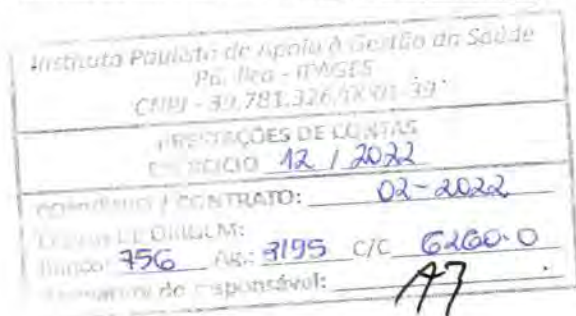 Instituto Paulista de Apoio à Gestão da Saúde
Pública - IPAGES
CNPJ - 39.781.326/0001-39
PRESTAÇÕES DE CONTAS
EXERCÍCIO 12 / 2022
CONVÊNIO / CONTRATO: 02-2022
DE ORIGEM:
Banco: 756 Ag.: 3195 C/C 6260-0
do responsável: